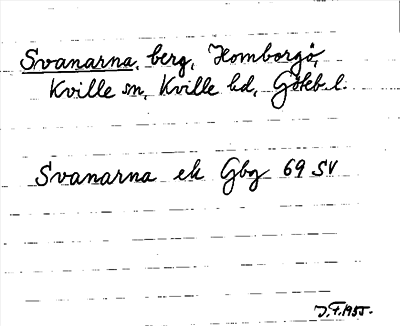 Svanarna, berg, Homborgö,
Kville sn, Kville hd, Göteb l.
Svanarna ek Gbg 69 SV
J.F. 1955.